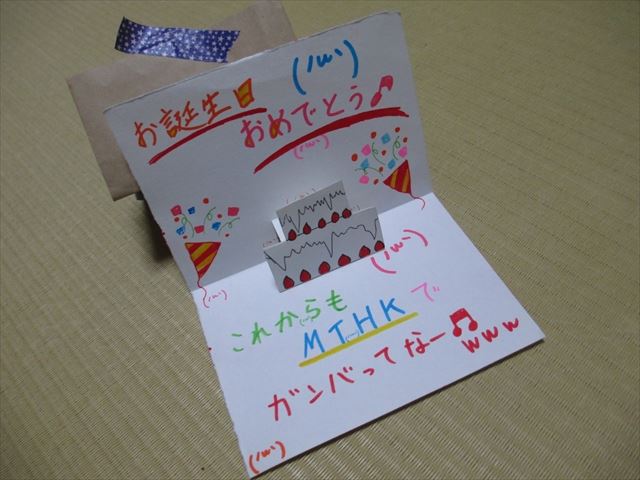 お誕生日
おめでとう♪
これからも
MTHKで
ガンバってなー♫
www